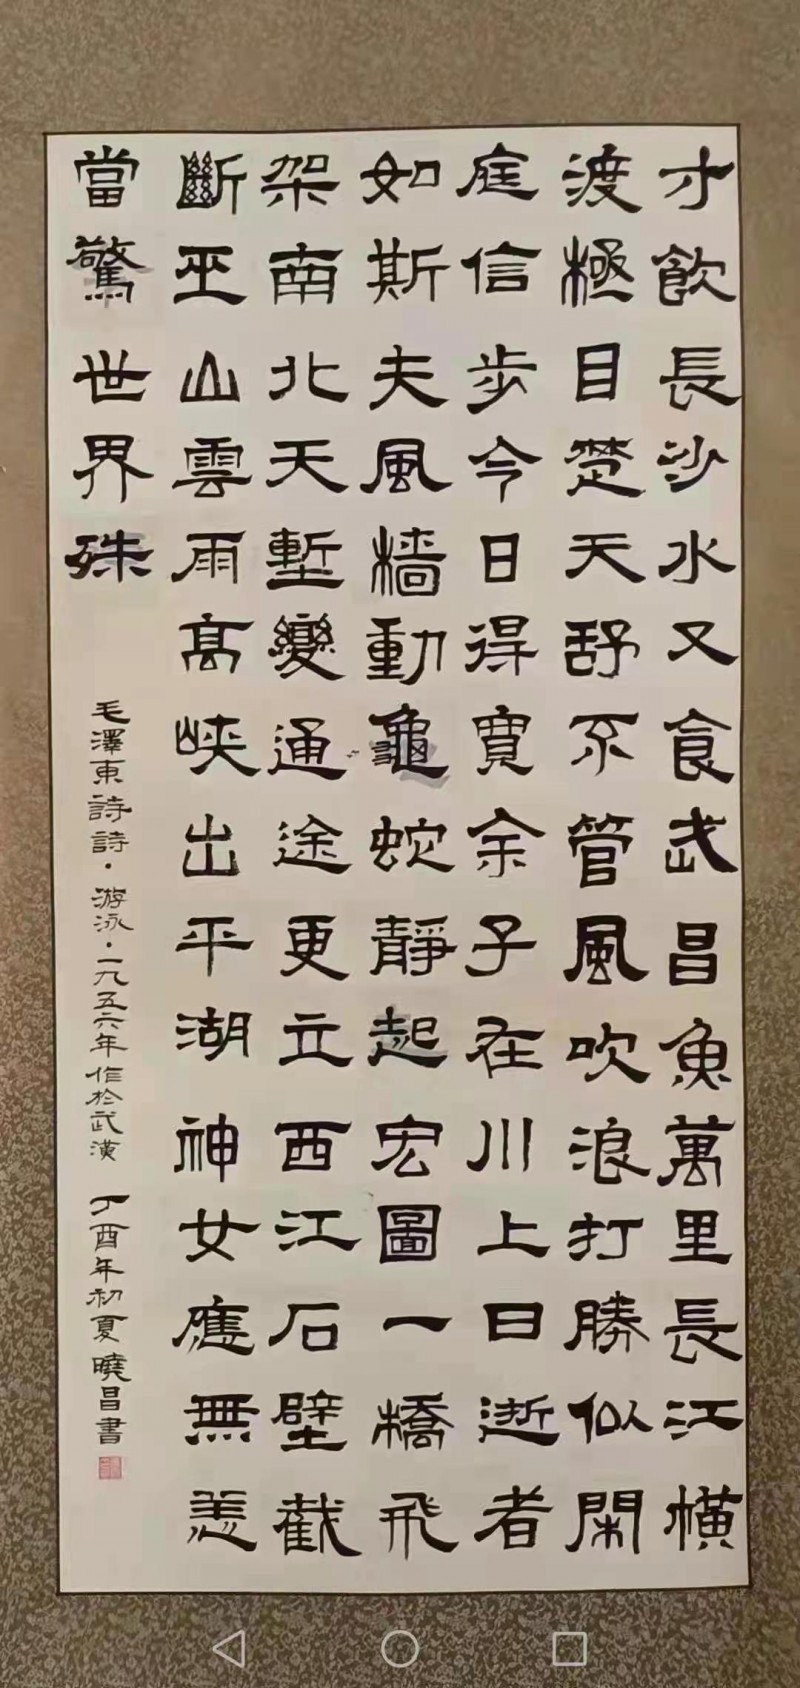 才飲長沙水又食武昌魚萬里長江橫
渡極目楚天舒不管風吹浪打勝似閑
庭信步今日得寬余子在川上曰逝者
如斯夫風檣動龜蛇靜起宏圖一橋飛
架南北天塹變通途更立西江石壁截
斷巫山雲雨高峽出平湖神女應無恙
當驚世界殊
毛澤東詩詩·游泳·一九五六年作於武漢 丁酉年初夏曉昌書